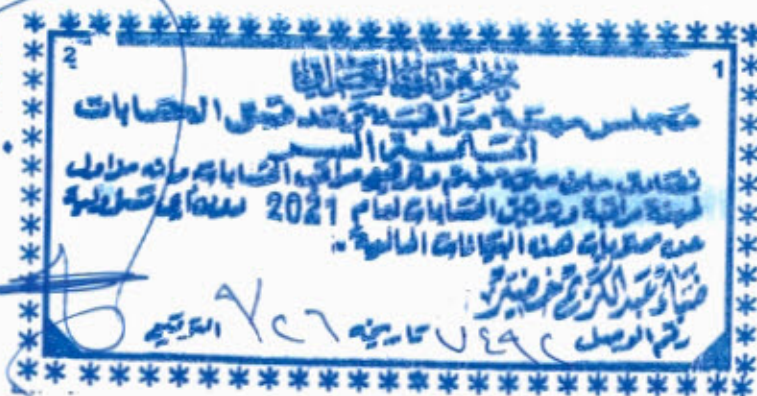 2 1
جمهورية العراق
مجلس مهنة مراقبة وتدقيق الحسابات
نصادق على صحة ختم وتوقيع مراقب الحسابات وانه مزاول
لمهنة مراقبة وتدقيق الحسابات لعام 2021 دون اي مسؤولية
عن محتويات هذه البيانات المالية
ضياء عبدالكريم خضير
رقم الوصل ٧٤٩٢ تاريخه ٩/٢٦ التوقيع